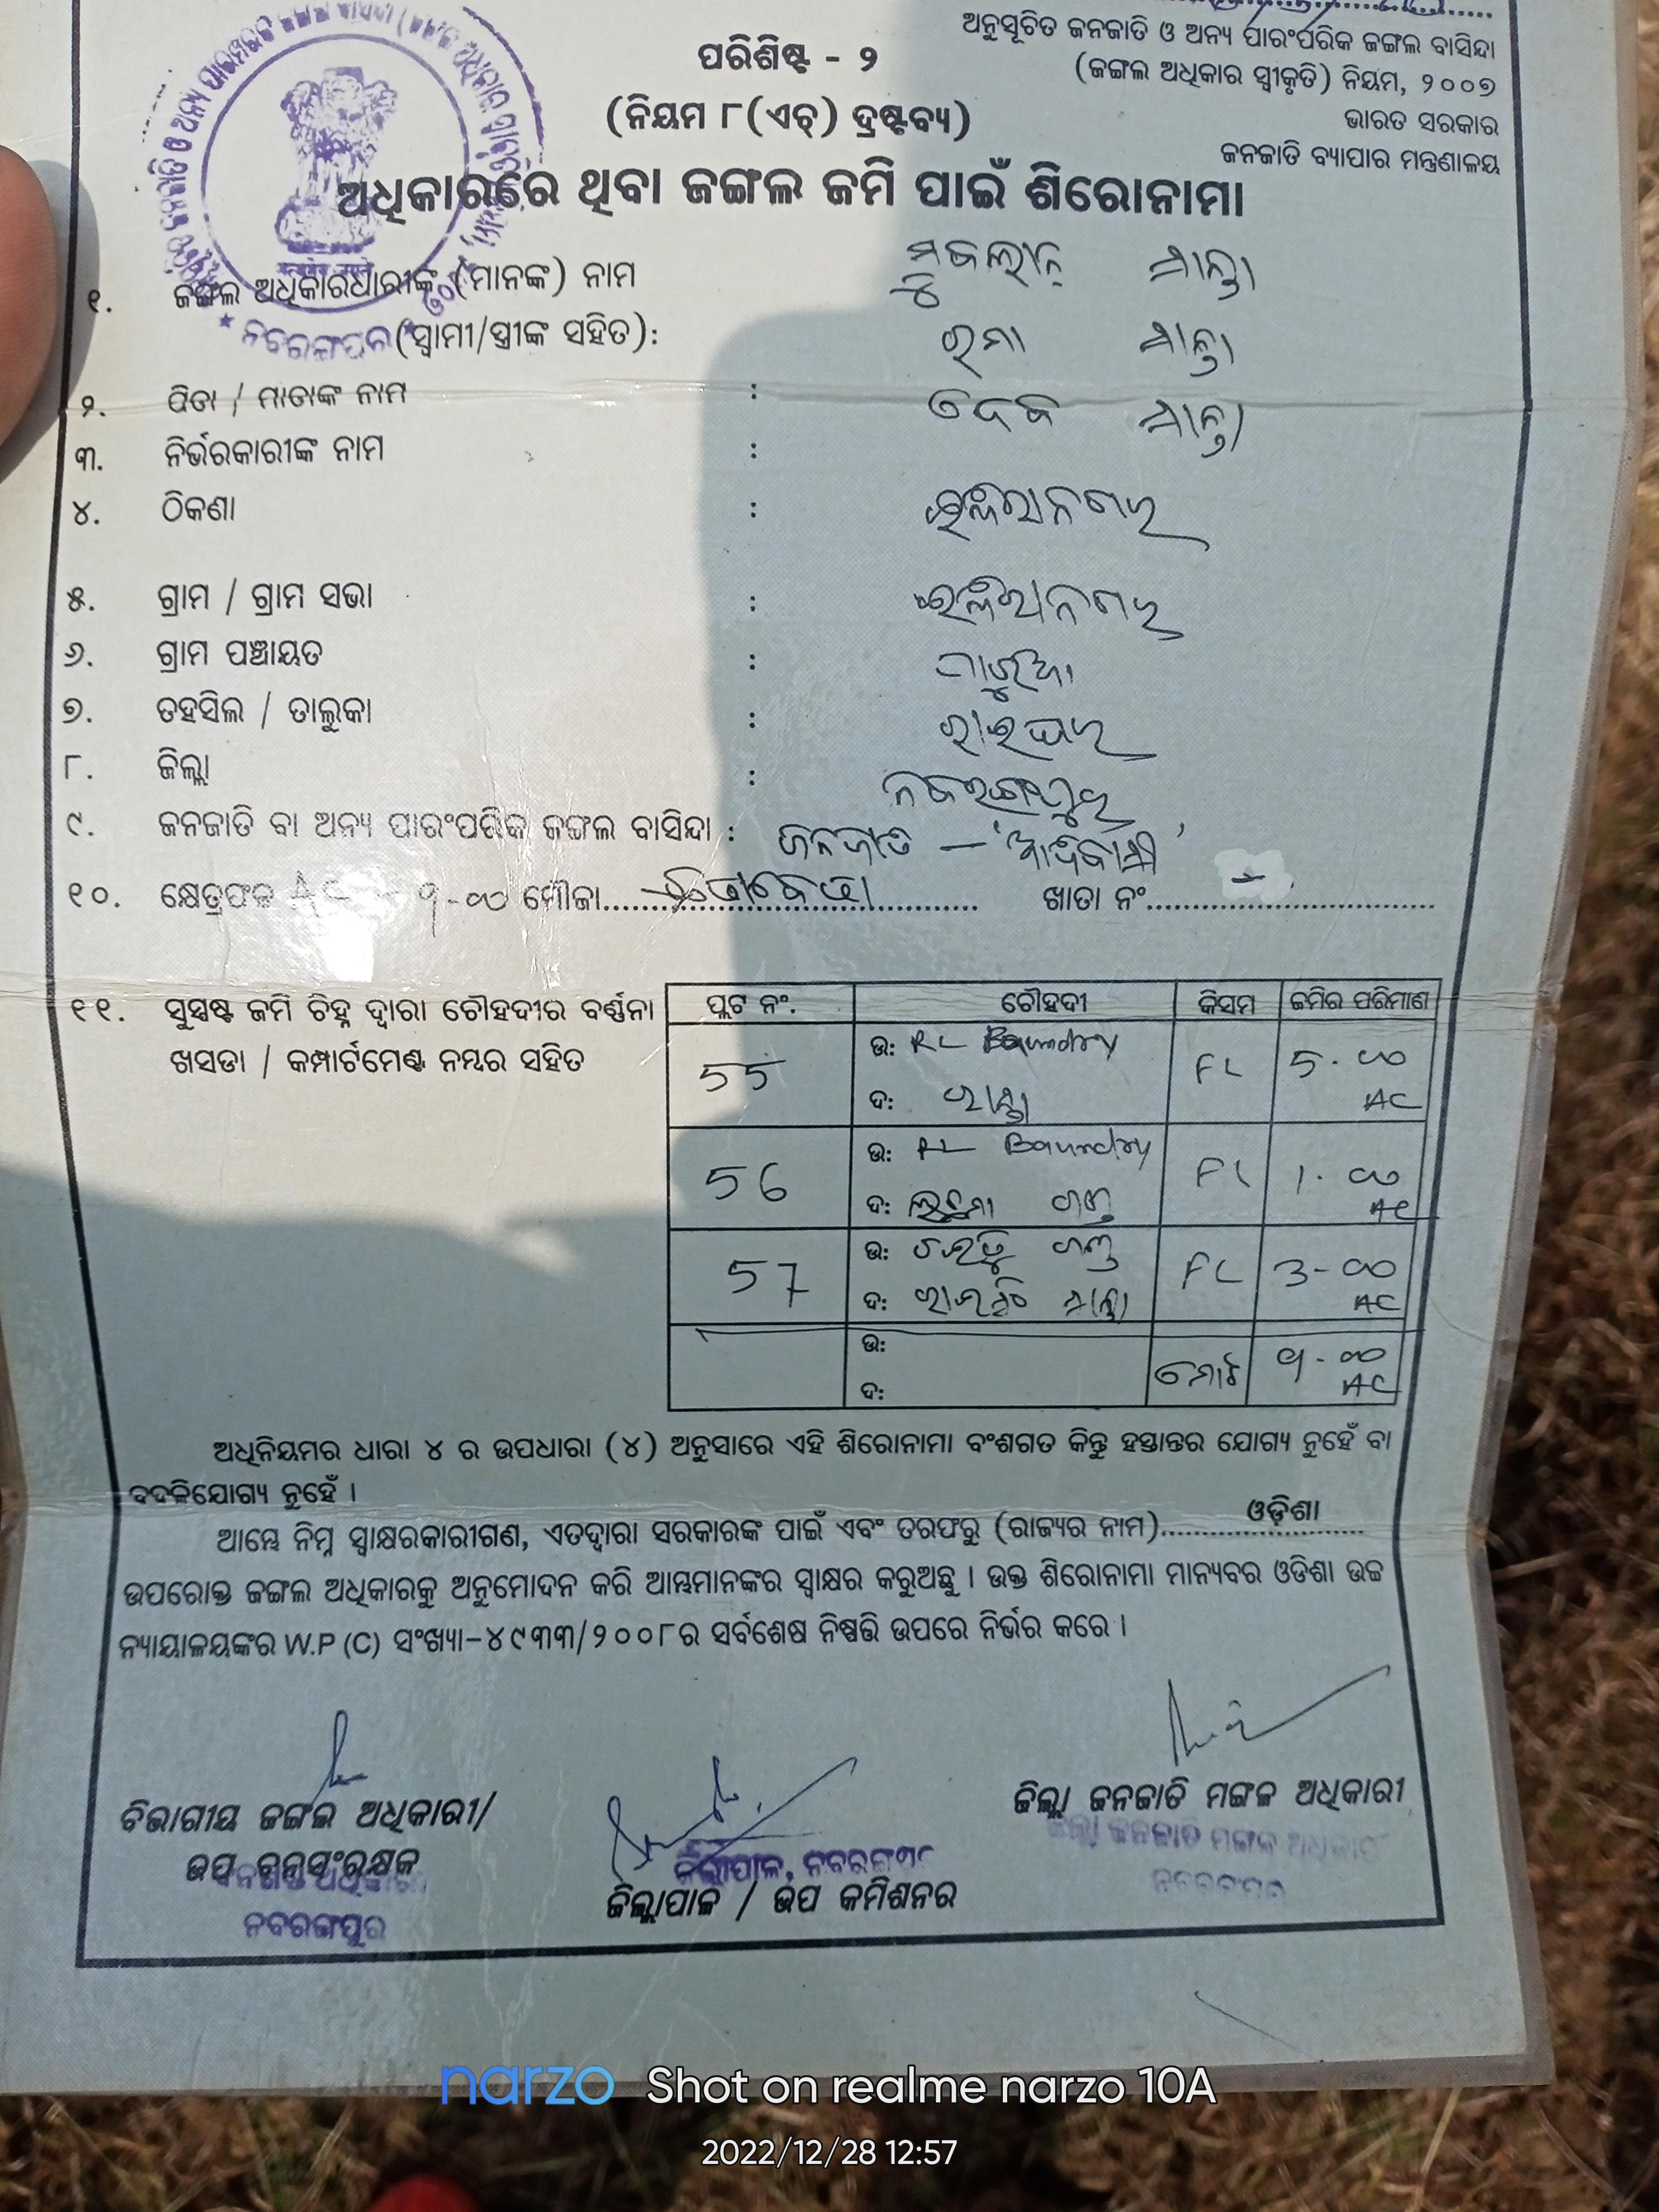 ଅନୁସୂଚିତ ଜନଜାତି ଓ ଅନ୍ୟ ପାରଂପରିକ ଜଙ୍ଗଲ ବାସିନ୍ଦା
(ଜଙ୍ଗଲ ଅଧିକାର ସ୍ୱୀକୃତି) ନିୟମ, ୨୦୦୭
ଭାରତ ସରକାର
ଜନଜାତି ବ୍ୟାପାର ମନ୍ତ୍ରଣାଳୟ
ପରିଶିଷ୍ଟ - ୨
(ନିୟମ ୮(ଏଚ୍) ଦ୍ରଷ୍ଟବ୍ୟ)
ଅଧିକାରରେ ଥିବା ଜଙ୍ଗଲ ଜମି ପାଇଁ ଶିରୋନାମା
୧. ଜଙ୍ଗଲ ଅଧିକାରଧାରୀଙ୍କ (ମାନଙ୍କ) ନାମ
(ସ୍ୱାମୀ/ସ୍ତ୍ରୀଙ୍କ ସହିତ):
୨. ପିତା / ମାତାଙ୍କ ନାମ :
୩. ନିର୍ଭରକାରୀଙ୍କ ନାମ :
୪. ଠିକଣା : ଇନ୍ଦିରାନଗର
୫. ଗ୍ରାମ / ଗ୍ରାମ ସଭା : ଇନ୍ଦିରାନଗର
୬. ଗ୍ରାମ ପଞ୍ଚାୟତ :
୭. ତହସିଲ / ତାଲୁକା : ରାଇଘର
୮. ଜିଲ୍ଲା : ନବରଙ୍ଗପୁର
୯. ଜନଜାତି ବା ଅନ୍ୟ ପାରଂପରିକ ଜଙ୍ଗଲ ବାସିନ୍ଦା : ଜନଜାତି - 'ଆଦିବାସୀ'
୧୦. କ୍ଷେତ୍ରଫଳ AC - 9-00 ମୌଜା.......... ଖାତା ନଂ.......... -
୧୧. ସୁସ୍ପଷ୍ଟ ଜମି ଚିହ୍ନ ଦ୍ୱାରା ଚୌହଦୀର ବର୍ଣ୍ଣନା
ଖସଡା / କମ୍ପାର୍ଟମେଣ୍ଟ ନମ୍ବର ସହିତ
ପ୍ଲଟ ନଂ. ଚୌହଦୀ କିସମ ଜମିର ପରିମାଣ
55 ଉ: RL Boundry FL 5.00 AC
ଦ: ରାସ୍ତା
56 ଉ: RL Boundry FL 1.00 AC
ଦ: ଗଣ୍ଡ
57 ଉ: ଗଣ୍ଡ FL 3-00 AC
ଦ:
ଉ: ମୋଟ 9-00 AC
ଦ:
ଅଧିନିୟମର ଧାରା ୪ ର ଉପଧାରା (୪) ଅନୁସାରେ ଏହି ଶିରୋନାମା ବଂଶଗତ କିନ୍ତୁ ହସ୍ତାନ୍ତର ଯୋଗ୍ୟ ନୁହେଁ ବା
ବଦଳିଯୋଗ୍ୟ ନୁହେଁ ।
ଆମ୍ଭେ ନିମ୍ନ ସ୍ୱାକ୍ଷରକାରୀଗଣ, ଏତଦ୍ୱାରା ସରକାରଙ୍କ ପାଇଁ ଏବଂ ତରଫରୁ (ରାଜ୍ୟର ନାମ)......ଓଡ଼ିଶା......
ଉପରୋକ୍ତ ଜଙ୍ଗଲ ଅଧିକାରକୁ ଅନୁମୋଦନ କରି ଆମ୍ଭମାନଙ୍କର ସ୍ୱାକ୍ଷର କରୁଅଛୁ । ଉକ୍ତ ଶିରୋନାମା ମାନ୍ୟବର ଓଡିଶା ଉଚ୍ଚ
ନ୍ୟାୟାଳୟଙ୍କର W.P (C) ସଂଖ୍ୟା-୪୯୩୩/୨୦୦୮ର ସର୍ବଶେଷ ନିଷ୍ପତ୍ତି ଉପରେ ନିର୍ଭର କରେ ।
ବିଭାଗୀୟ ଜଙ୍ଗଲ ଅଧିକାରୀ/
ଉପ ବନସଂରକ୍ଷକ
ନବରଙ୍ଗପୁର
ଜିଲ୍ଲାପାଳ, ନବରଙ୍ଗପୁର
ଜିଲ୍ଲାପାଳ / ଉପ କମିଶନର
ଜିଲ୍ଲା ଜନଜାତି ମଙ୍ଗଳ ଅଧିକାରୀ
ଜିଲ୍ଲା ଜନଜାତି ମଙ୍ଗଳ ଅଧିକାରୀ
ନବରଙ୍ଗପୁର
narzo Shot on realme narzo 10A
2022/12/28 12:57